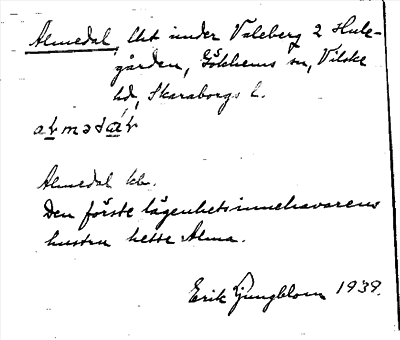 Almedal, lht under Valeberg 2 Hule-
gården, Gökhems sn, Vilske
hd, Skaraborgs l.
Almedal kb.
Den förste lägenhetsinnehavarens
hustru hette Alma.
Erik Ljungblom 1939.